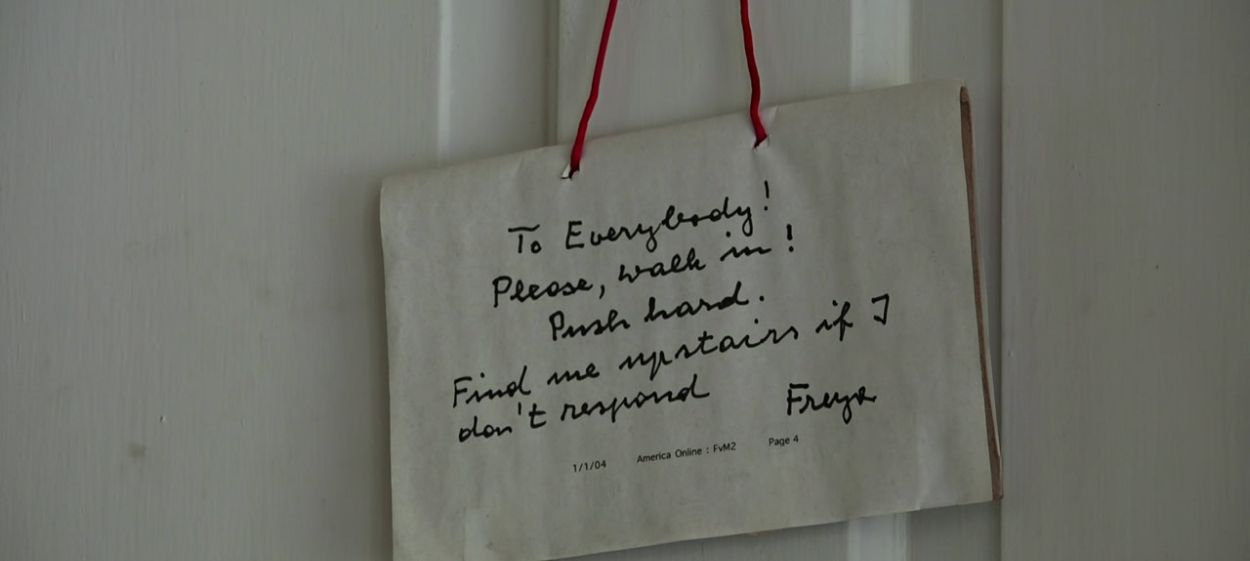 To Everybody!
Please, walk in!
Push hard.
Find me upstairs if I
don't respond Freya
1/1/04 America Online : FvM2 Page 4